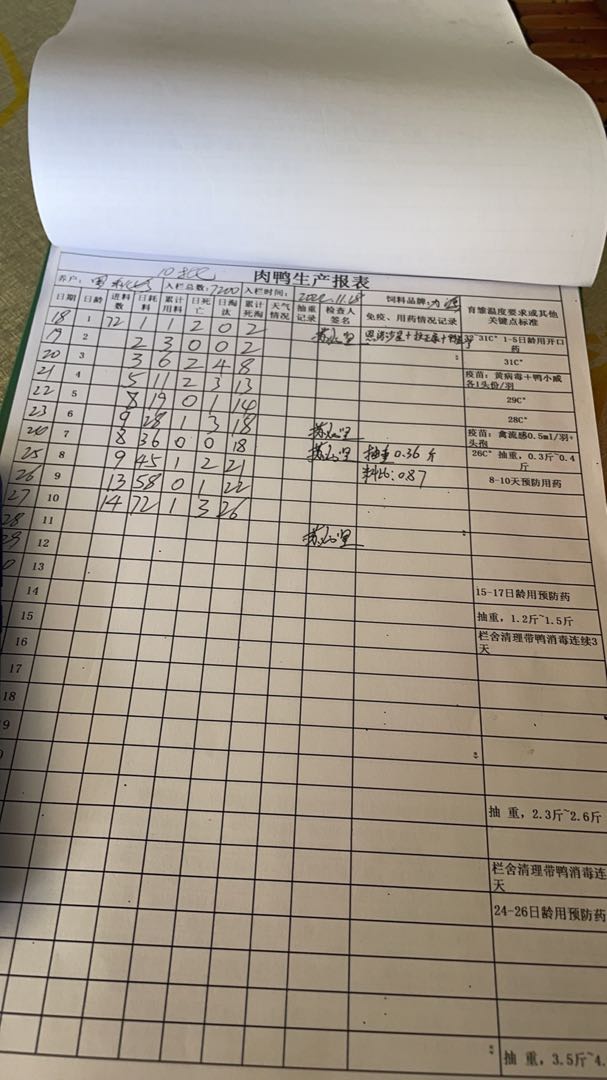 10批
肉鸭生产报表
养户: 入栏总数: 7200 入栏时间: 11.18 饲料品牌:
日期 日龄 进料数 日耗料 累计用料 日死亡 日淘汰 累计死淘 天气情况 抽重记录 检查人签名 免疫、用药情况记录 育雏温度要求或其他关键点标准
18 1 72 1 1 2 0 2
19 2 2 3 0 0 2 31C° 1-5日龄用开口药
20 3 3 6 2 4 8 31C°
21 4 5 11 2 3 13 疫苗：黄病毒+鸭小威各1头份/羽
22 5 8 19 0 1 14 29C°
23 6 9 28 1 3 18 28C°
7 8 36 0 0 18 疫苗：禽流感0.5ml/羽+头孢
25 8 9 45 1 2 21 抽重0.36斤 26C° 抽重，0.3斤~0.4斤
26 9 13 58 0 1 22 料比:0.87 8-10天预防用药
27 10 14 72 1 3 26
28 11
12
13
14 15-17日龄用预防药
15 抽重，1.2斤~1.5斤
16 栏舍清理带鸭消毒连续3天
17
18
抽 重，2.3斤~2.6斤
栏舍清理带鸭消毒连
天
24-26日龄用预防药
抽 重，3.5斤~4.